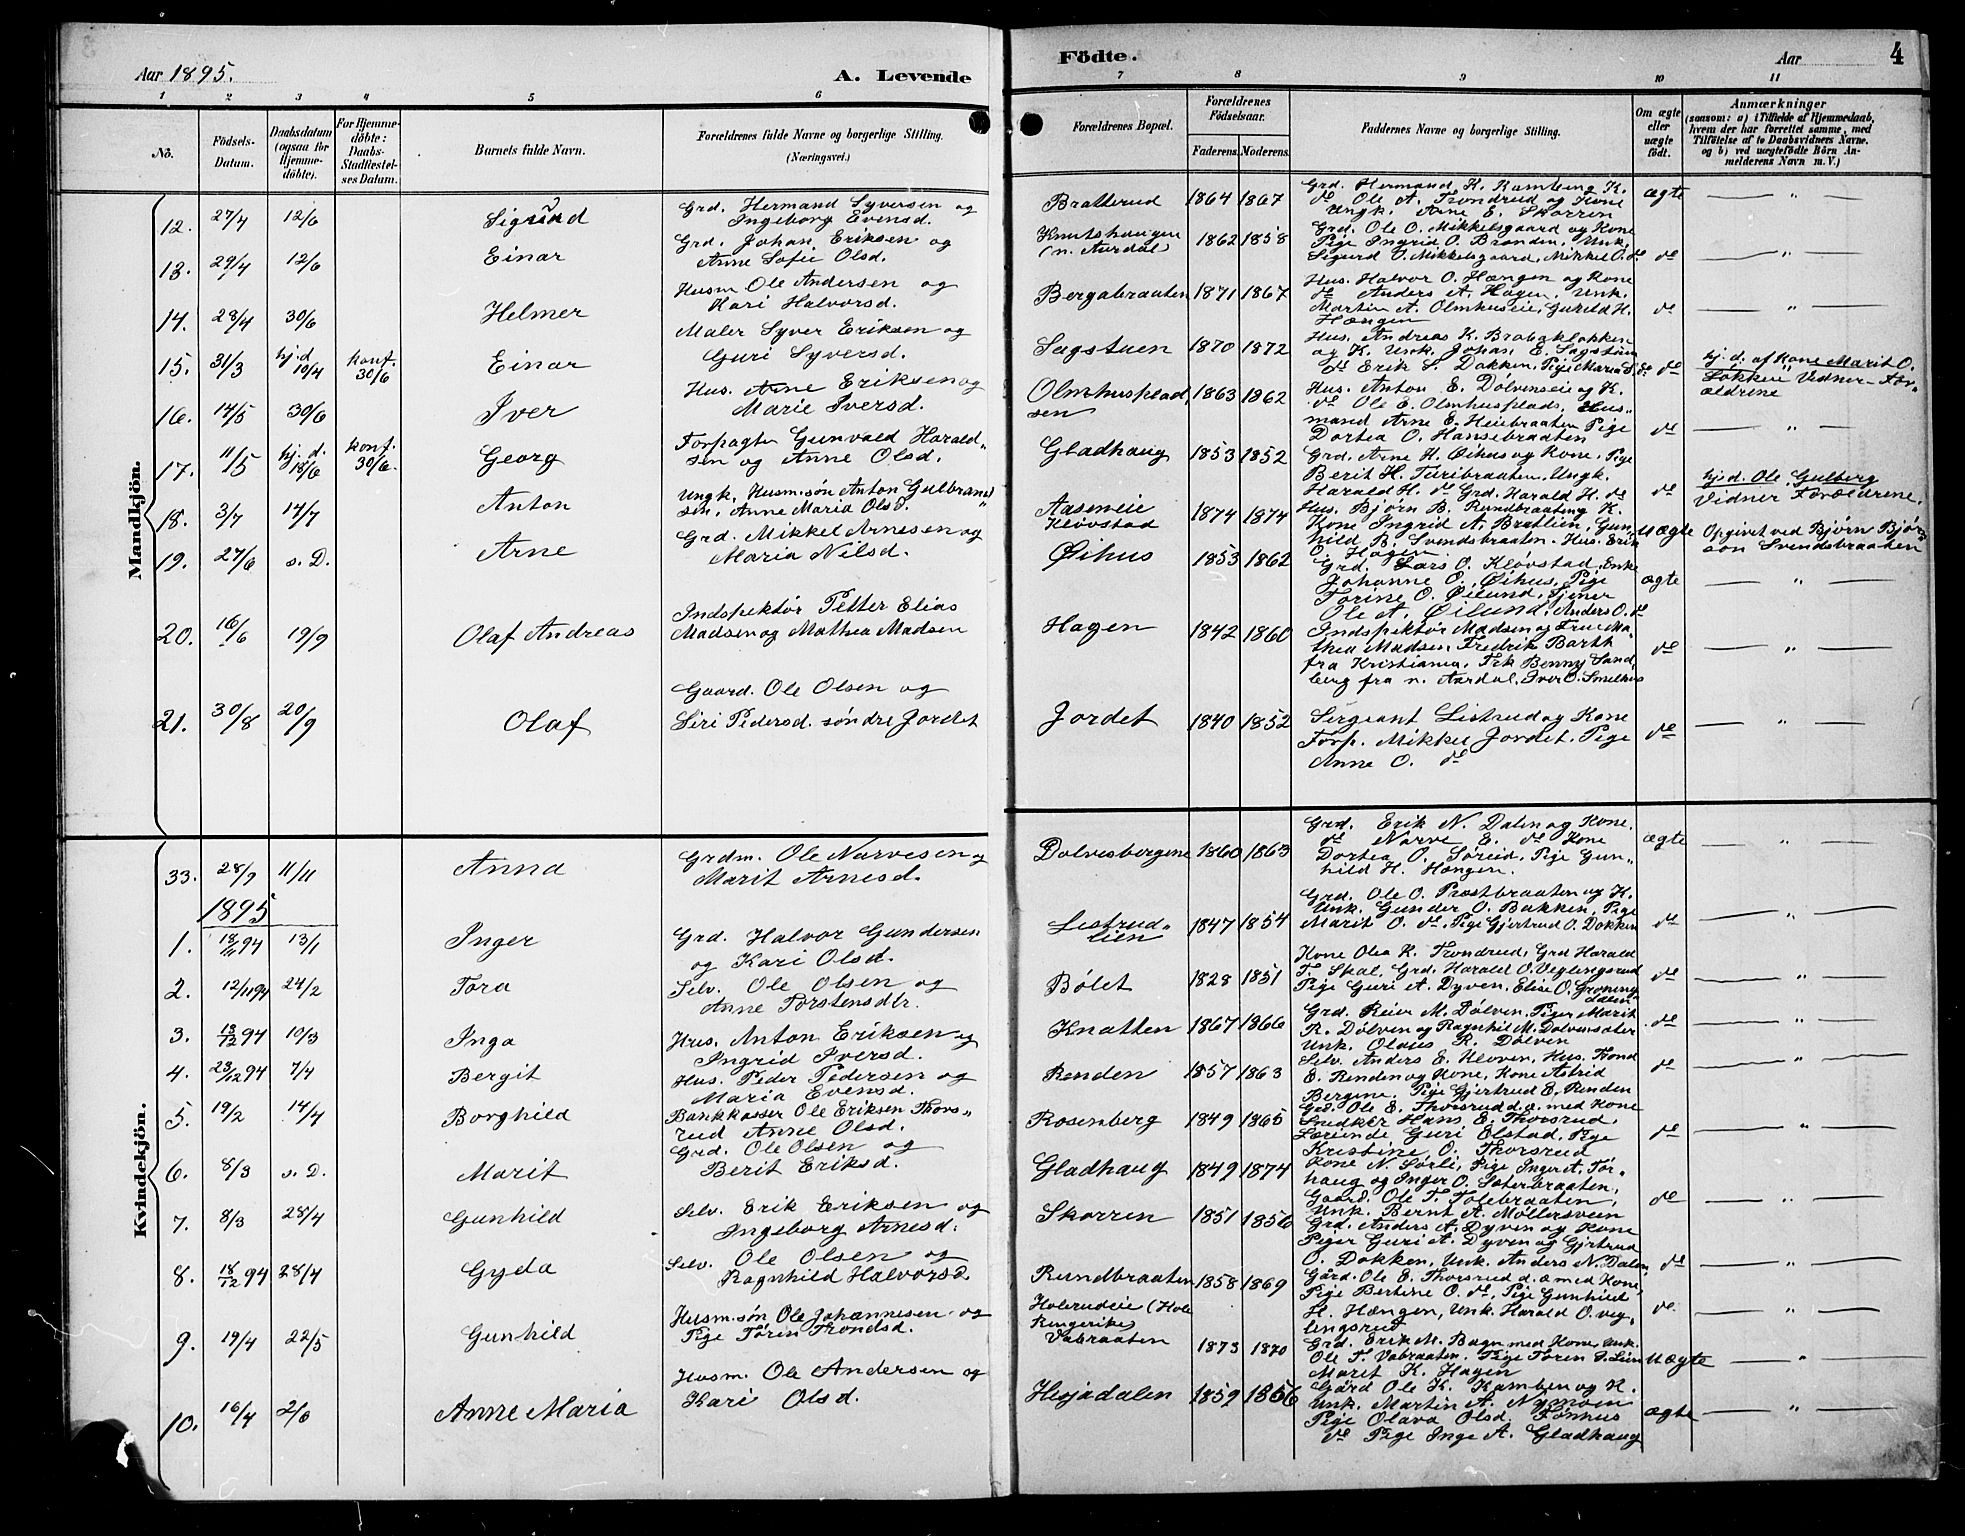 Aar 1895.
A. Levende
Födte.
Aar
4
1 2 3 4 5 6 7 8 9 10 11
Nö.
Födsels-Datum.
Daabsdatum (ogsaa for Hjemme-döbte).
For Hjemme-döbte: Daabs-Stadfæstel-ses Datum.
Barnets fulde Navn.
Forældrenes fulde Navne og borgerlige Stilling. (Næringsvei.)
Forældrenes Bopæl.
Forældrenes Födselsaar.
Faderens. Moderens.
Faddernes Navne og borgerlige Stilling.
Om ægte eller uægte födt.
Anmærkninger
(saasom: a) i Tilfælde af Hjemmedaab,
hvem der har forrettet samme, med
Tilföielse af to Daabsvidners Navne.
og b) ved uægtefödte Börn An-
melderens Navn m. V.)
Mandkjön.
12. 27/4 12/6 Sigurd Grd. Hermand Syversen og Ingeborg Evensd. Bratterud 1864 1867 Grd. Hermand K. Kamben K. do Ole A. Trondrud og Kone Ungk. Arne E. Skorren ægte — " —
13. 29/4 12/6 Einar Grd. Johan Eriksen og Anne Sofie Olsd. Knutshaugen (n. Aurdal) 1862 1858 Grd. Ole O. Mikkelsgaard og Kone Pige Ingrid O. Branden, Unk. Sigurd O. Mikkelsgaard, Mikkel O. do do — " —
14. 28/4 30/6 Helmer Husm. Ole Andersen og Kari Halvorsd. Bergabraaten 1871 1867 Hus. Halvor O. Hængen og Kone do Anders A. Hagen, Unk. Martin A. Olmhuseie, Gunild H. Hængen do — " —
15. 31/3 hj. d. 10/4 konf. 30/6 Einar Maler Syver Eriksen og Guri Syversd. Sagstuen 1870 1872 Hus. Andreas K. og K. Unk. Johan E. Sagstuen do Erik S. Dokken, Pige Maria S. do do hj. d. af Kone Marit O. Løkken Vidner Forældrene
16. 14/5 30/6 Iver Hus. Arne Eriksen og Marie Iversd. Olmhusplad,sen 1863 1862 Hus. Anton E. Dølvenseie og K. do Ole E. Olmhusplads, Husmand Arne E. Heiebraaten Pige Dortea O. Hansebraaten do — " —
17. 11/5 hj. d. 18/6 konf. 30/6. Georg Forpagter Gunvald Haraldsen og Anne Olsd. Gladhaug 1853 1852 Grd. Arne H. Øihus og Kone, Pige Berit H. Turibraaten, Ungk. Harald H. do Grd. Harald H. do do hj. d. Ole Gulberg Vidner Forældrene.
18. 3/7 14/7 Anton Ungk. Husm.søn Anton Gulbrandsen, Anne Maria Olsd. Aasmeie Kløvstad 1874 1874 Hus. Bjørn B. Rundbraaten og K. Kone Ingrid A. Bratlien, Gunhild B. Svendsbraaten. Hus. Erik O. Hagen. uægte Opgivet ved Bjørn Bjørnson Svendsbraaten
19. 27/6 s. D. Arne Grd. Mikkel Arnesen og Maria Nilsd. Øihus 1853 1862 Grd. Lars O. Kløvstad, Enke Johanne O. Øihus, Pige Torine O. Øilund, Tjener Ole A. Øilund, Anders O. do ægte — " —
20. 16/6 19/9 Olaf Andreas Indspektør Petter Elias Madsen og Mathea Madsen Hagen 1842 1860 Indspektør Madsen og Frue Mathea Madsen, Fredrik Barth fra Kristiania, Frk Benny Sandberg fra n. Aurdal, Iver O. Smelhus do — " —
21. 30/8 20/9 Olaf Gaard. Ole Olsen og Siri Pedersd. søndre Jordet Jordet 1840 1852 Sergeant Listrud og Kone Forp. Mikkel Jordet. Pige Anne O. do do — " —
Kvindekjön.
33. 28/9 11/11 Anna Grdm. Ole Narvesen og Marit Arnesd. Dølvesbergene 1860 1863 Grd. Erik N. Dalen og Kone. do Narve E. do Kone Dortea O. Søreid, Pige Gunhild H. Hængen. ægte — " —
1895
1. 94 13/1 Inger Grd. Halvor Gundersen og Kari Olsd. Listrudlien 1847 1854 Grd. Ole O. Præstbraaten og K. Unk. Gunder O. Bakken, Pige Marit O. do, Pige Gjertrud O. Dokken do — " —
2. 12/11 94 24/2 Tora Selv. Ole Olsen og Anne Torstensdtr. Bølet 1828 1851 Kone Olea K. Trondrud, Grd Harald T. Skal, Grd. Harald O. Veglingsrud Pige Guri A. Dyven, Elise O. Grønningdalen do — " —
3. 18/12 94 10/3 Inga Hus. Anton Eriksen og Ingrid Iversd. Knatten 1867 1866 Grd. Reier M. Dølven, Piger Marit R. Dølven og Ragnhil M. Dølvensæter Unk. Olaus R. Dølven do — " —
4. 23/12 94 7/4 Bergit Hus. Peder Pedersen og Maria Evensd. Renden 1857 1863 Selv. Anders E. Kloven, Hus. Trond E. Renden og Kone, Kone Astrid Bergene, Pige Gjertrud E. Renden do — " —
5. 19/2 14/4 Borghild Bankkasser Ole Eriksen Thorsrud Anne Olsd. Rosenberg 1849 1865 Grd. Ole E. Thorsrud d. æ. med Kone Snedker Hans E. Thorsrud, Lærerinde Guri Elstad, Pige Kristine O. Thorsrud do — " —
6. 8/3 s. D. Marit Grd. Ole Olsen og Berit Eriksd. Gladhaug 1849 1874 Kone N. Sørli, Pige Inger A. Tørhaug og Inger O. Sæterbraaten, Gaard. Ole T. Tolebraaten, Unk. Bernt A. Møllersvein do — " —
7. 8/3 28/4 Gunhild Selv. Erik Eriksen og Ingeborg Arnesd. Skorren 1851 1856 Grd. Anders A. Dyven og Kone Piger Guri A. Dyven og Gjertrud O. Dokken, Unk. Anders N. Dalen, do — " —
8. 18/12 94 28/4 Gyda Selv. Ole Olsen og Ragnhild Halvorsd. Rundbraaten 1858 1869 Gård. Ole E. Thorsrud d. æ med Kone Pige Bertine O. do, Pige Gunhild H. Hængen, Unk. Harald O. Veglingsrud do — " —
9. 19/4 22/5 Gunhild Husm.søn Ole Johannesen og Pige Tøren Trondsd. Holerudeie (Hole Ringerike) Vabraaten 1873 1870 Grd. Erik M. Bagn med Kone, Unk. Ole T. Vabraaten. Pige Tøren Marit K. Hagen uægte — " —
10. 16/4 2/6 Anne Maria Husm. Ole Andersen og Kari Olsd. Heijadalen 1859 1856 Gård Ole K. Kamben og K. Unk. Martin A. Nymoen Pige Olava Olsd. Fønhus do Pige Inge A. Gladhaug ægte — " —